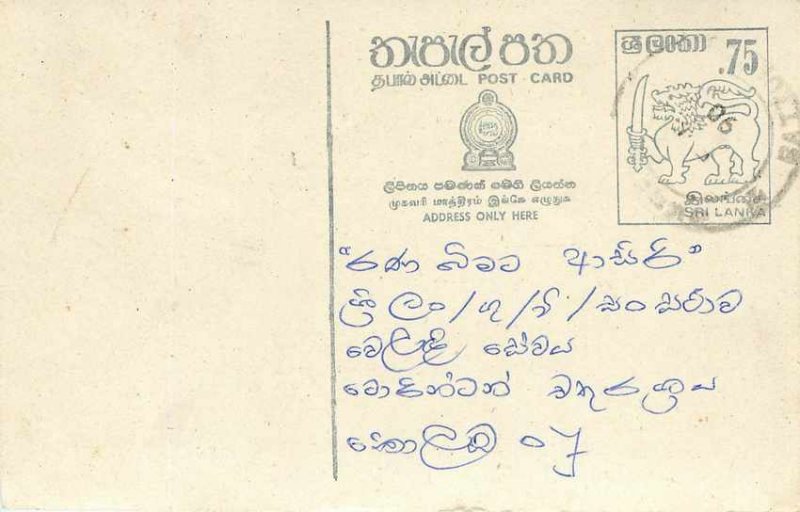 තැපැල් පත
தபால் அட்டை POST CARD
ලිපිනය පමණක් මෙහි ලියන්න
முகவரி மாத்திரம் இங்கே எழுதுக
ADDRESS ONLY HERE
ශ්‍රී ලංකා
.75
இலங்கை
SRI LANKA
"රණ බිමට ආසිරි"
ශ්‍රී ලං/ගු/වි/සංස්ථාව
වෙළඳ සේවය
ටොරින්ටන් චතුරශ්‍රය
කොළඹ 07